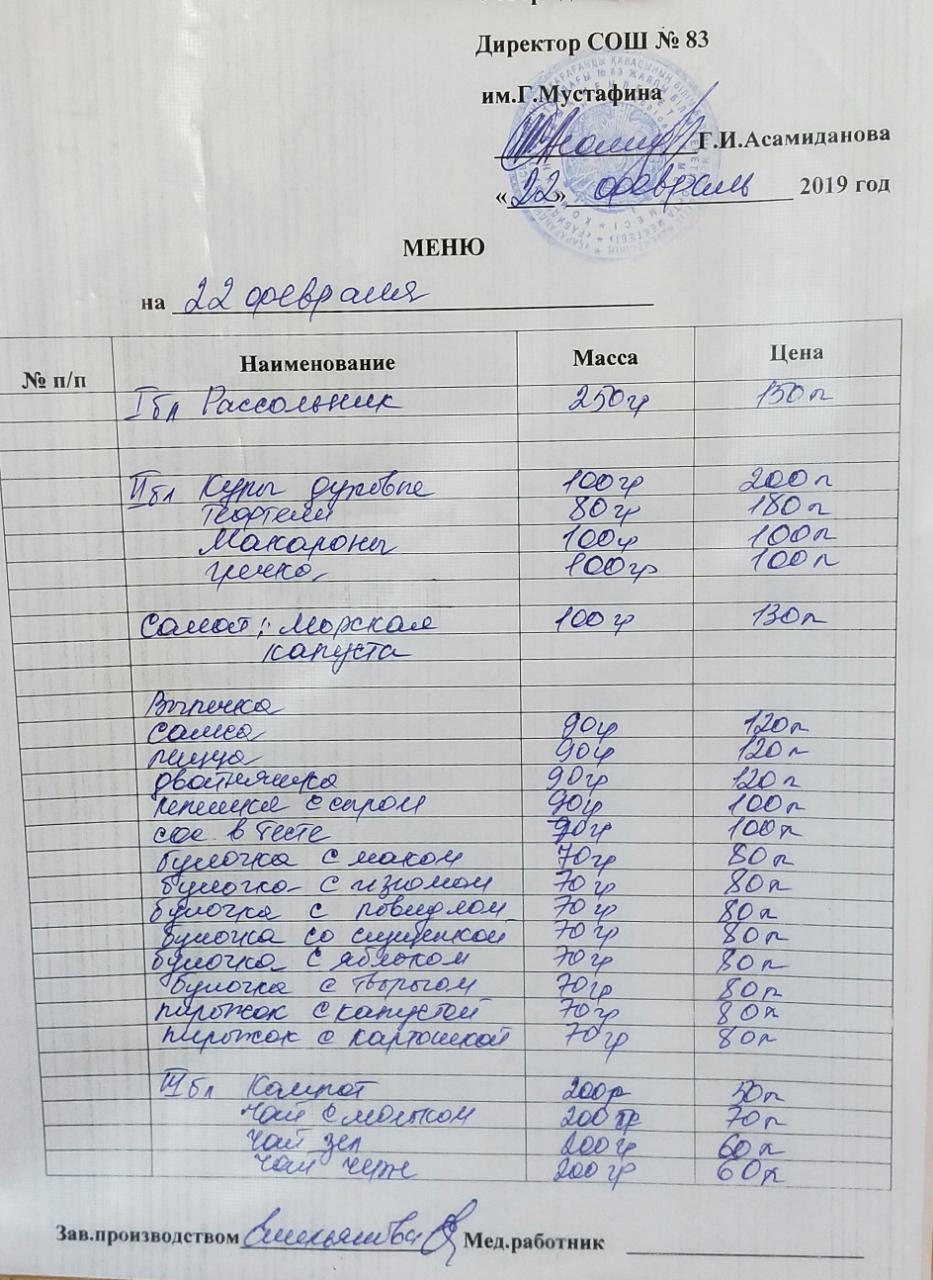 Директор СОШ № 83
им.Г.Мустафина
Г.И.Асамиданова
«22» февраль 2019 год
МЕНЮ
на 22 февраля
№ п/п Наименование Масса Цена
I бл Рассольник 250гр 150т
II бл Куры духовые 100гр 200т
Тефтели 80гр 180т
Макароны 100гр 100т
гречка 100гр 100т
Салат: Морская 100гр 130т
капуста
Выпечка
самса 90гр 120т
пицца 90гр 120т
двойняшка 90гр 120т
лепешка с сыром 90гр 100т
сос в тесте 90гр 100т
булочка с маком 70гр 80т
булочка с изюмом 70гр 80т
булочка с повидлом 70гр 80т
булочка со сгущенкой 70гр 80т
булочка с яблоком 70гр 80т
булочка с творогом 70гр 80т
пирожок с капустой 70гр 80т
пирожок с картошкой 70гр 80т
III бл Компот 200гр 50т
Чай с молоком 200гр 70т
Чай зел 200гр 60т
Чай черн 200гр 60т
Зав.производством Мед.работник